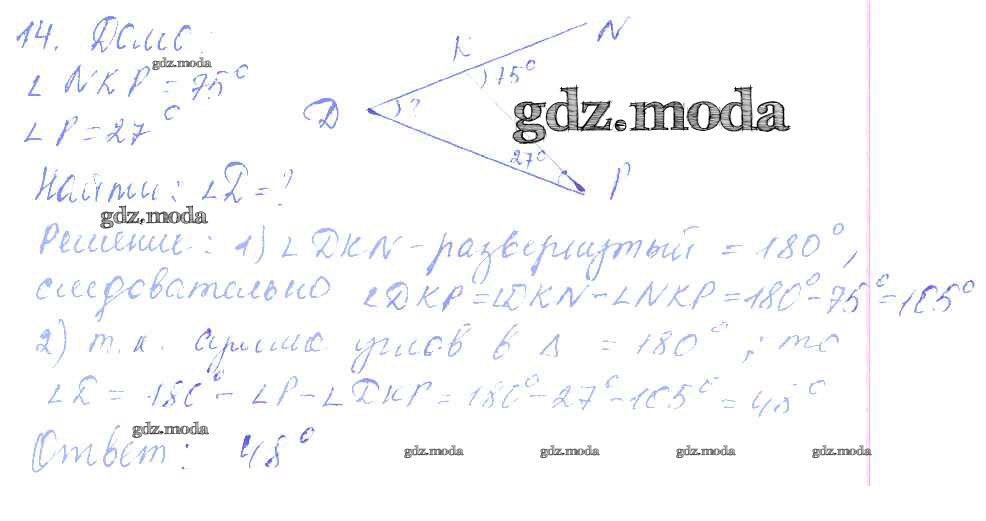 14. Дано:
∠ NKP = 75°
∠ P = 27°
Найти: ∠D = ?
D ? K 75° N
27° P
Решение: 1) ∠DKN - развернутый = 180°,
следовательно ∠DKP = ∠DKN - ∠NKP = 180° - 75° = 105°
2) т.к. сумма углов в Δ = 180°, то
∠D = 180° - ∠P - ∠DKP = 180° - 27° - 105° = 48°
Ответ: 48°
gdz.moda
gdz.moda
gdz.moda
gdz.moda
gdz.moda gdz.moda gdz.moda gdz.moda